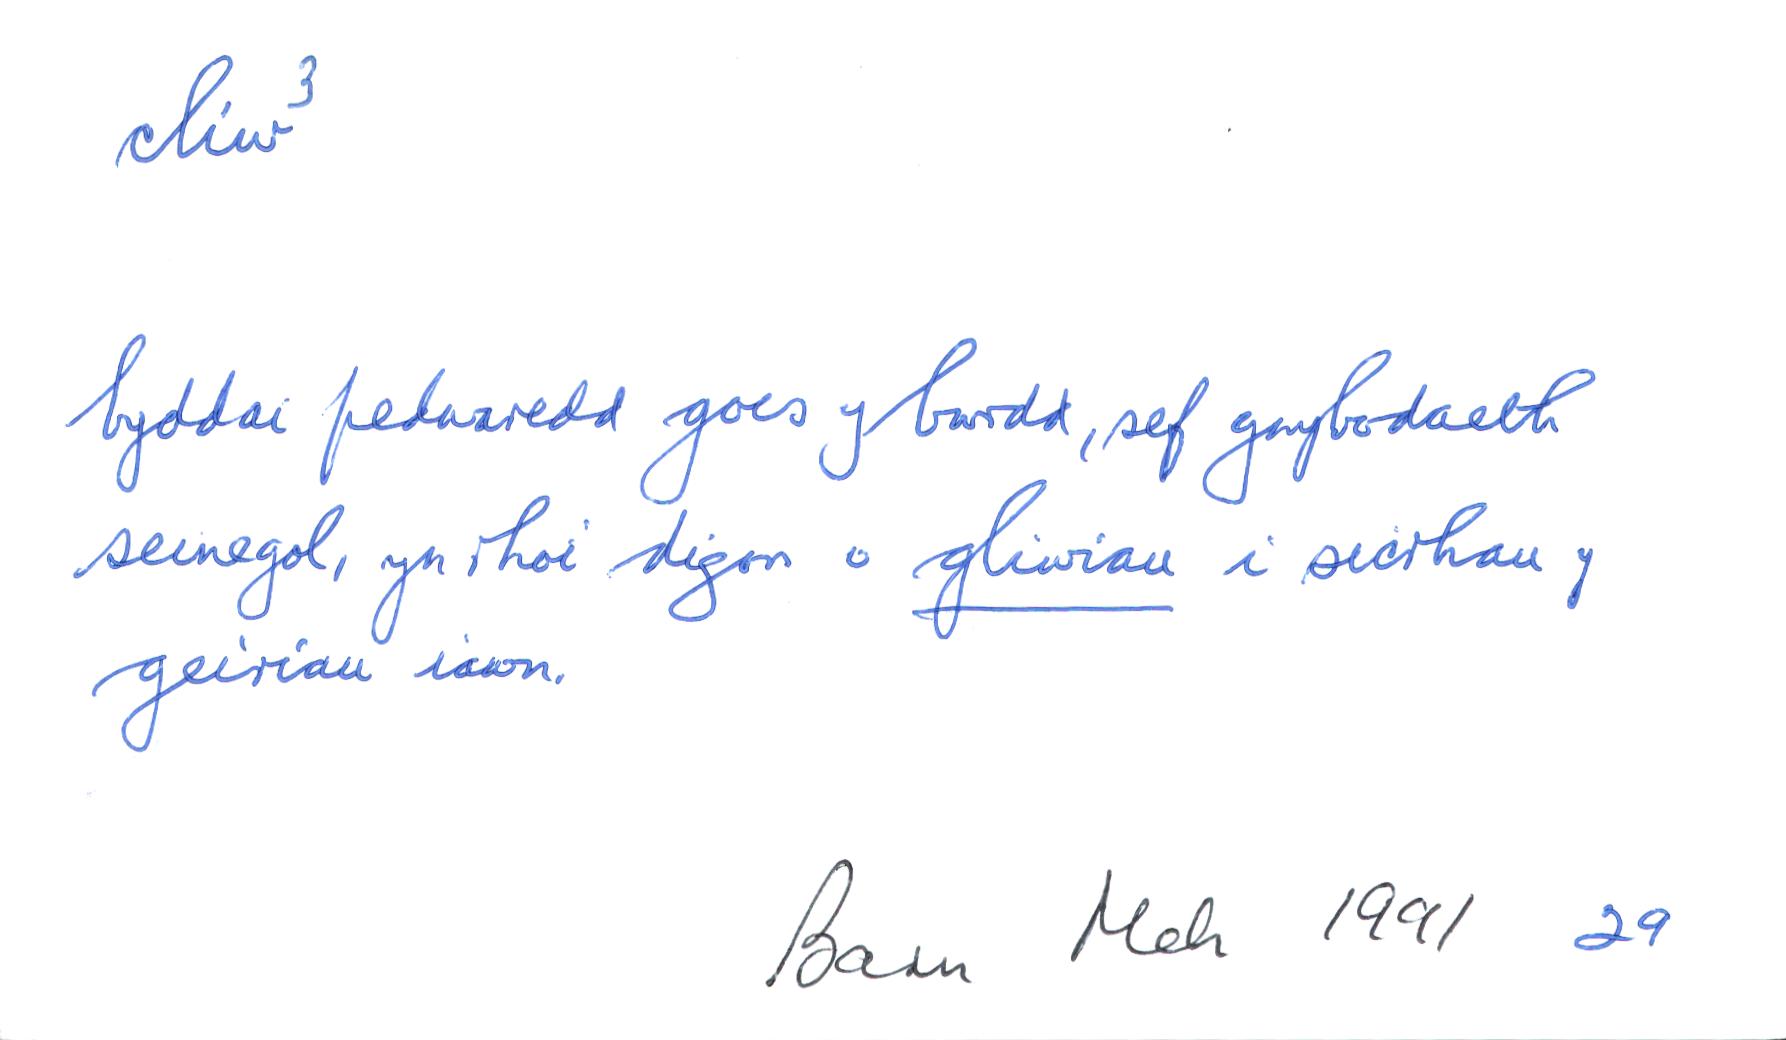 cliw³
byddai pedwaredd goes y bwrdd, sef gwybodaeth
seinegol, yn rhoi digon o gliwiau i sicrhau y
geiriau iawn.
Barn Meh 1991 29